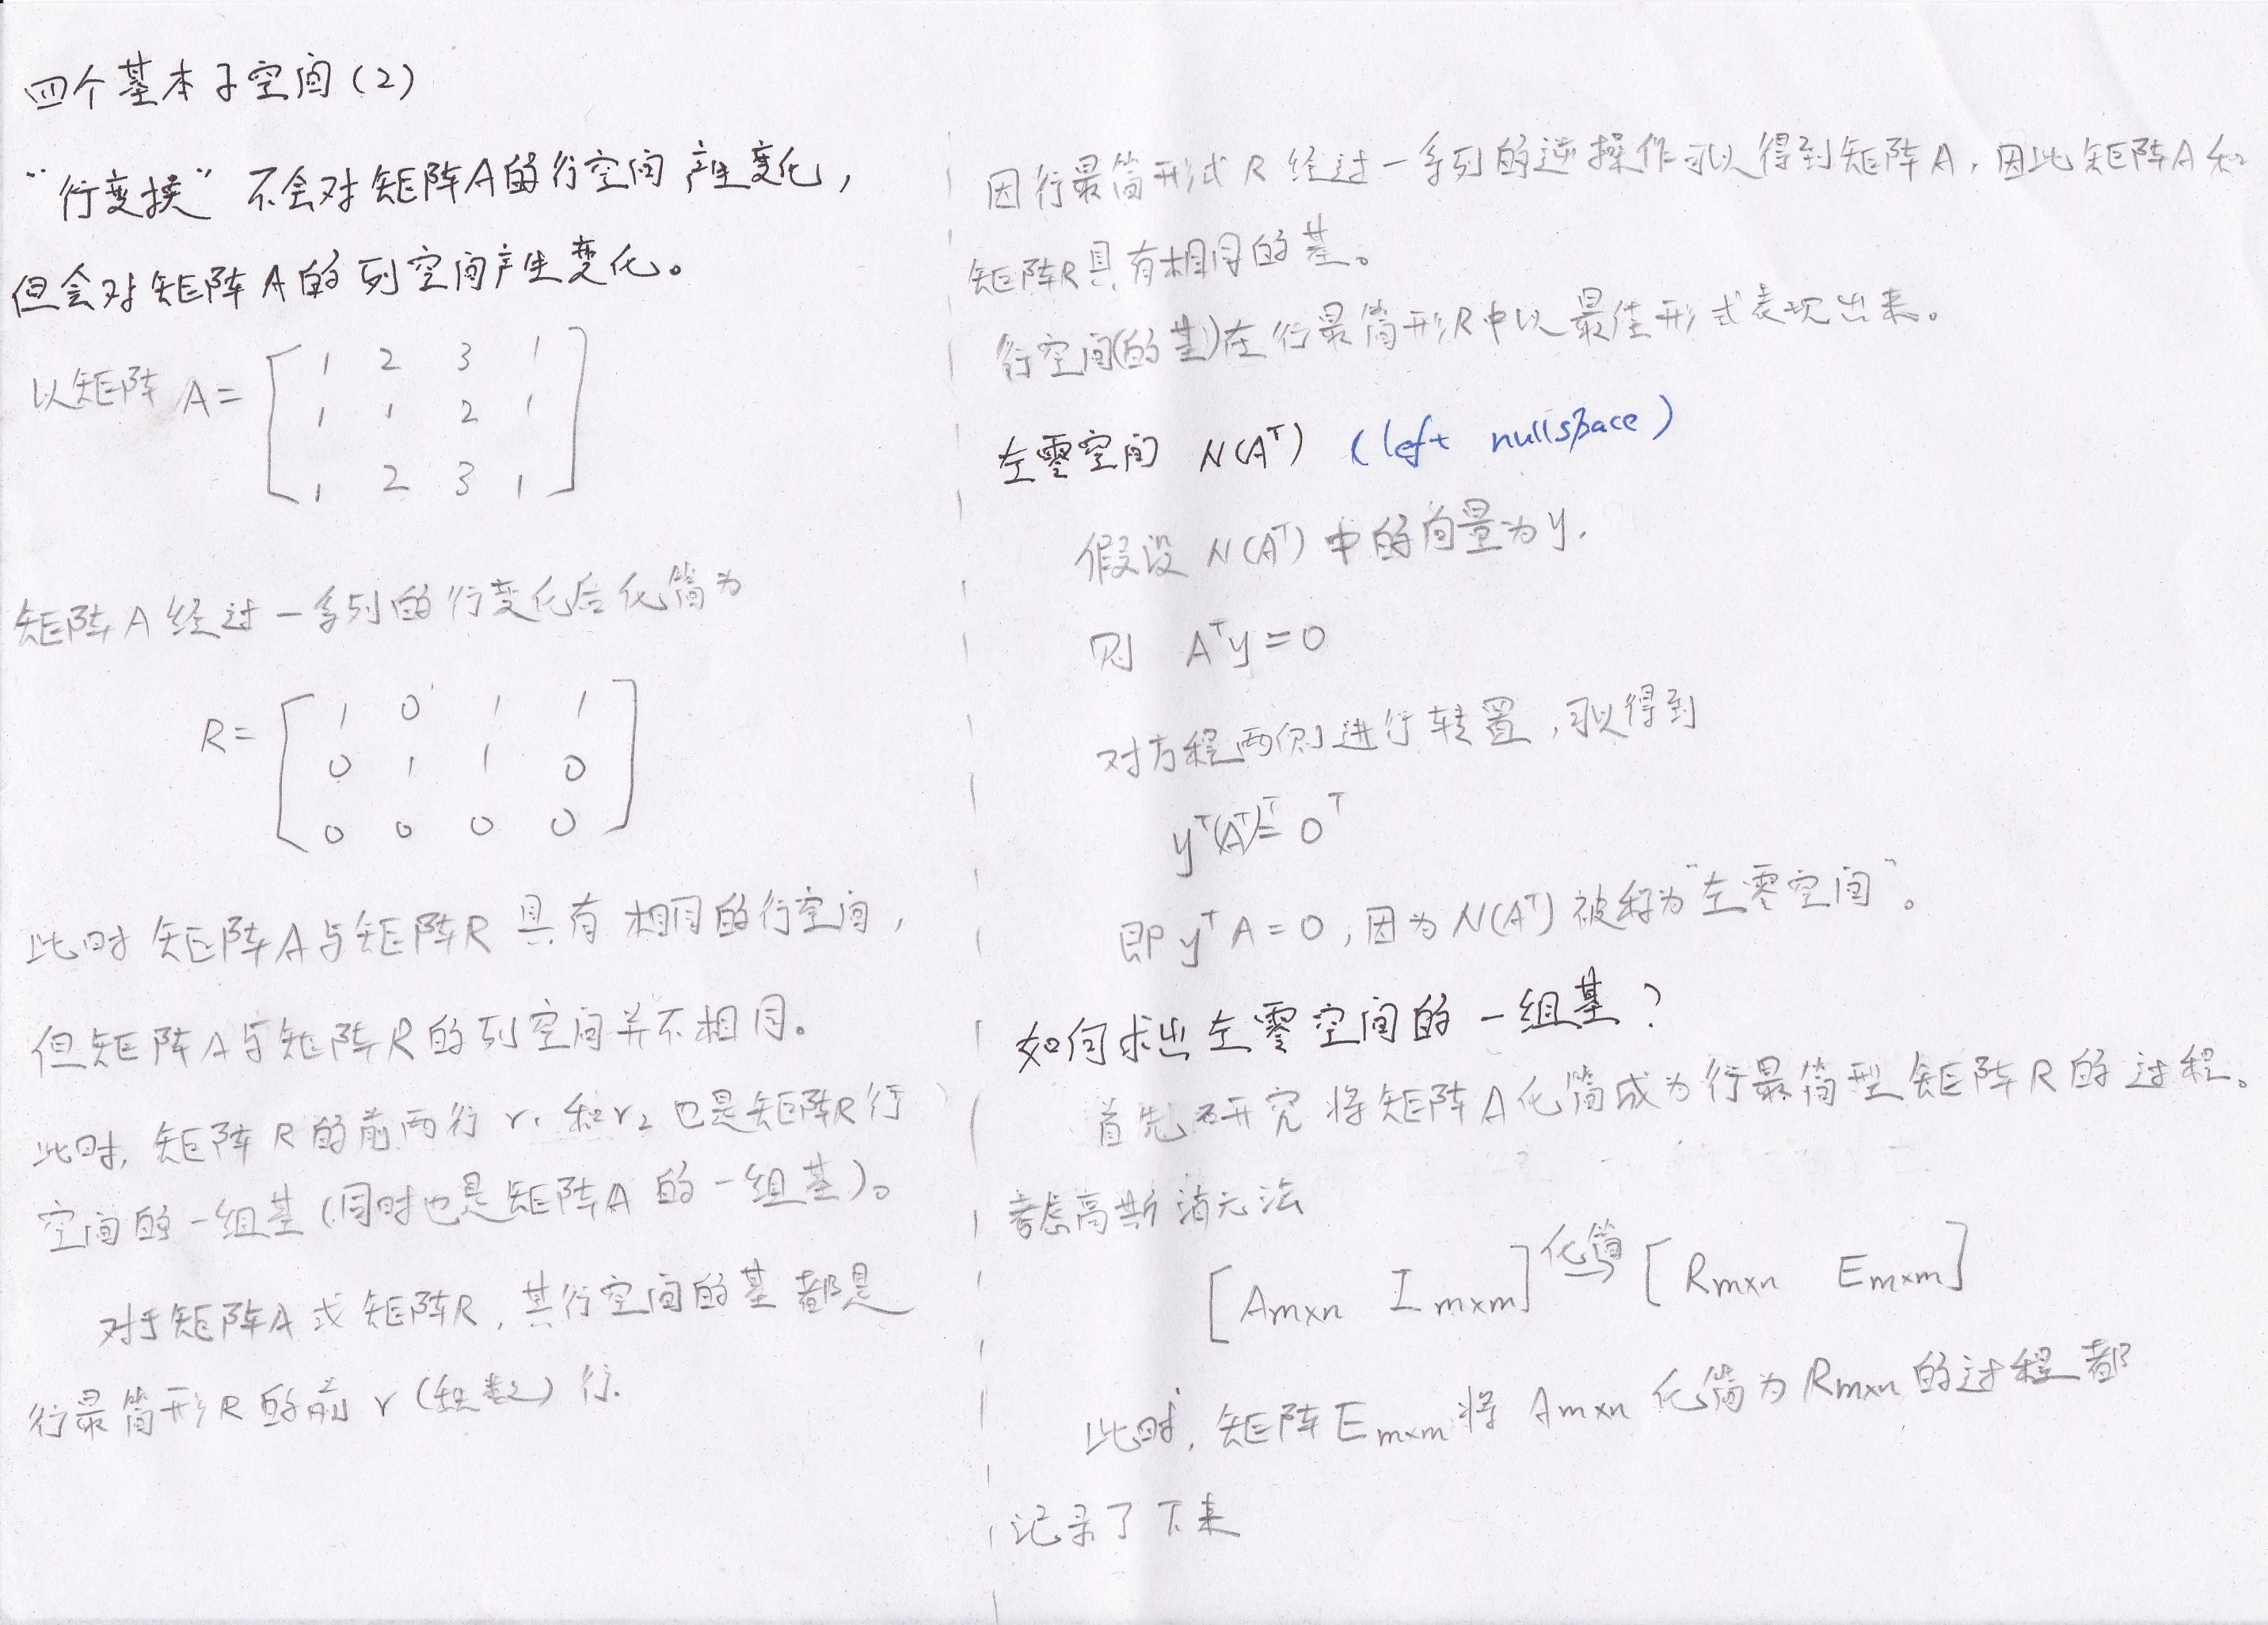 四个基本子空间(2)
“行变换”不会对矩阵A的行空间产生变化,
但会对矩阵A的列空间产生变化。
以矩阵 A=
1 2 3 1
1 1 2 1
1 2 3 1
矩阵A经过一系列的行变化后化简为
R=
1 0 1 1
0 1 1 0
0 0 0 0
此时矩阵A与矩阵R具有相同的行空间,
但矩阵A与矩阵R的列空间并不相同。
此时,矩阵R的前两行 r₁和r₂也是矩阵R行
空间的一组基(同时也是矩阵A的一组基)。
对于矩阵A或矩阵R,其行空间的基都是
行最简形R的前r(秩数)行.
因行最简形式R经过一系列的逆操作可以得到矩阵A,因此矩阵A和
矩阵R具有相同的基。
行空间(的基)在行最简形R中以最佳形式表现出来。
左零空间 N(Aᵀ) (left nullspace)
假设 N(Aᵀ)中的向量为y.
则 Aᵀy=0
对方程两侧进行转置,可以得到
yᵀ(Aᵀ)ᵀ=0ᵀ
即yᵀA=0,因为N(Aᵀ)被称为“左零空间”。
如何求出左零空间的一组基?
首先研究将矩阵A化简成为行最简型矩阵R的过程。
考虑高斯消元法
[Am×n Im×m] 化简→ [Rm×n Em×m]
此时,矩阵Em×m将Am×n化简为Rm×n的过程都
记录了下来